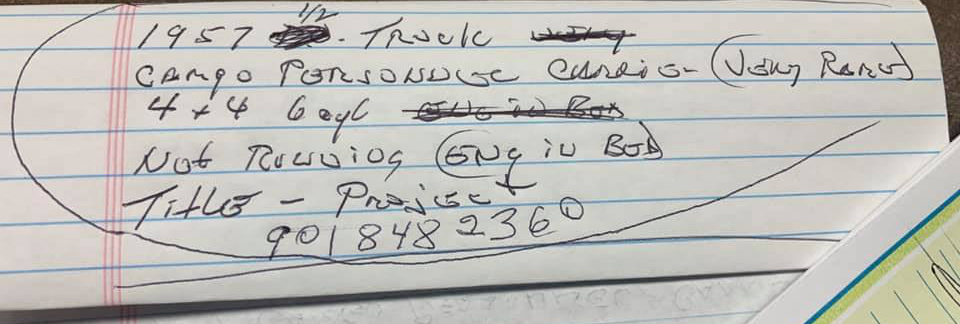 1/2
1957 . Truck
Cargo Personnel Carrier (Very Rare)
4x4 6 cyl Eng in Box
Not Running (Eng in Bed)
Title - Project
901 848 2360